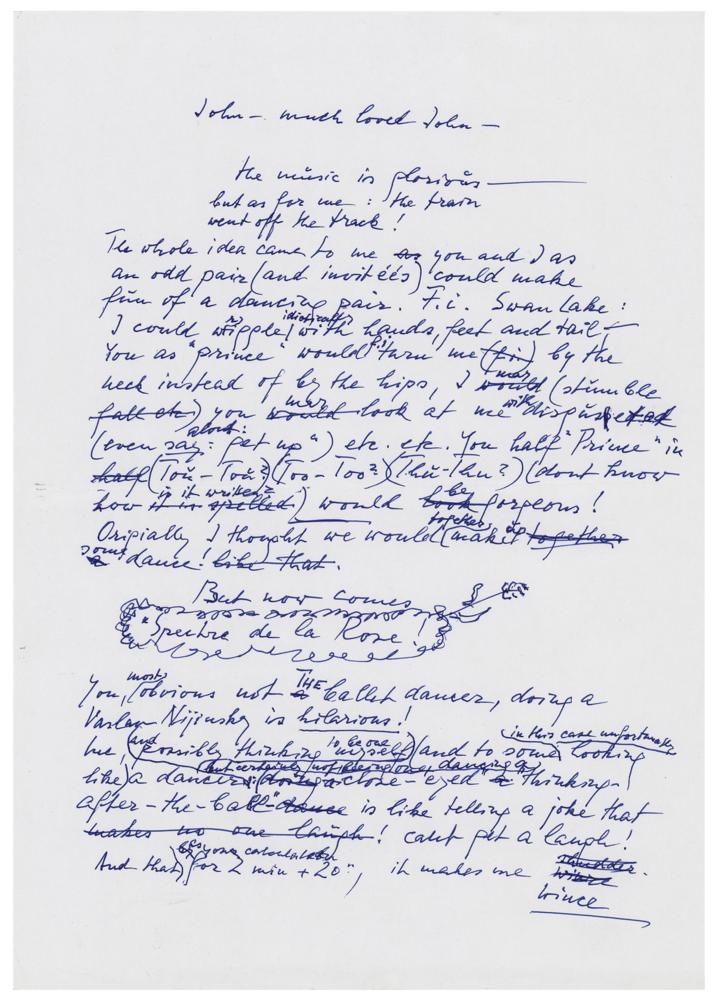 John – much loved John –
the music is glorious
but as for me : the train
went off the track !
The whole idea came to me as you and I as
an odd pair (and invitéés) could make
fun of a dancing pair. F.i. Swan Lake :
I could wiggle with hands, feet and tail –
You as "prince" would f.i. turn me (f.i.) by the
neck instead of by the hips, I would may (stumble
fall etc) you would may look at me with disgust
(even say: aloud: "get up") etc. etc. You half "Prince" in
half (Toú-Toú?) (Too-Too?) (Thú-Thu?) (dont know
how it is spelled is it written?) would look be gorgeous !
Origially I thought we would together make up together
a some dance ! like that.
But now comes
"Spectre de la Rose !
You, most obvious not a THE ballet dancer, doing a
Vaslav Nijinsky is hilarious !
me (and possibly thinking myself to be one) and to some in this case unfortunately looking
like) a dancer, but certainly not being one, dancing a (doing a close-eyed thinking-
after-the-ball" dance is like telling a joke that
makes no one laugh ! cant get a laugh !
And that by your calculation for 2 min + 20", it makes me shudder.
wince
wince